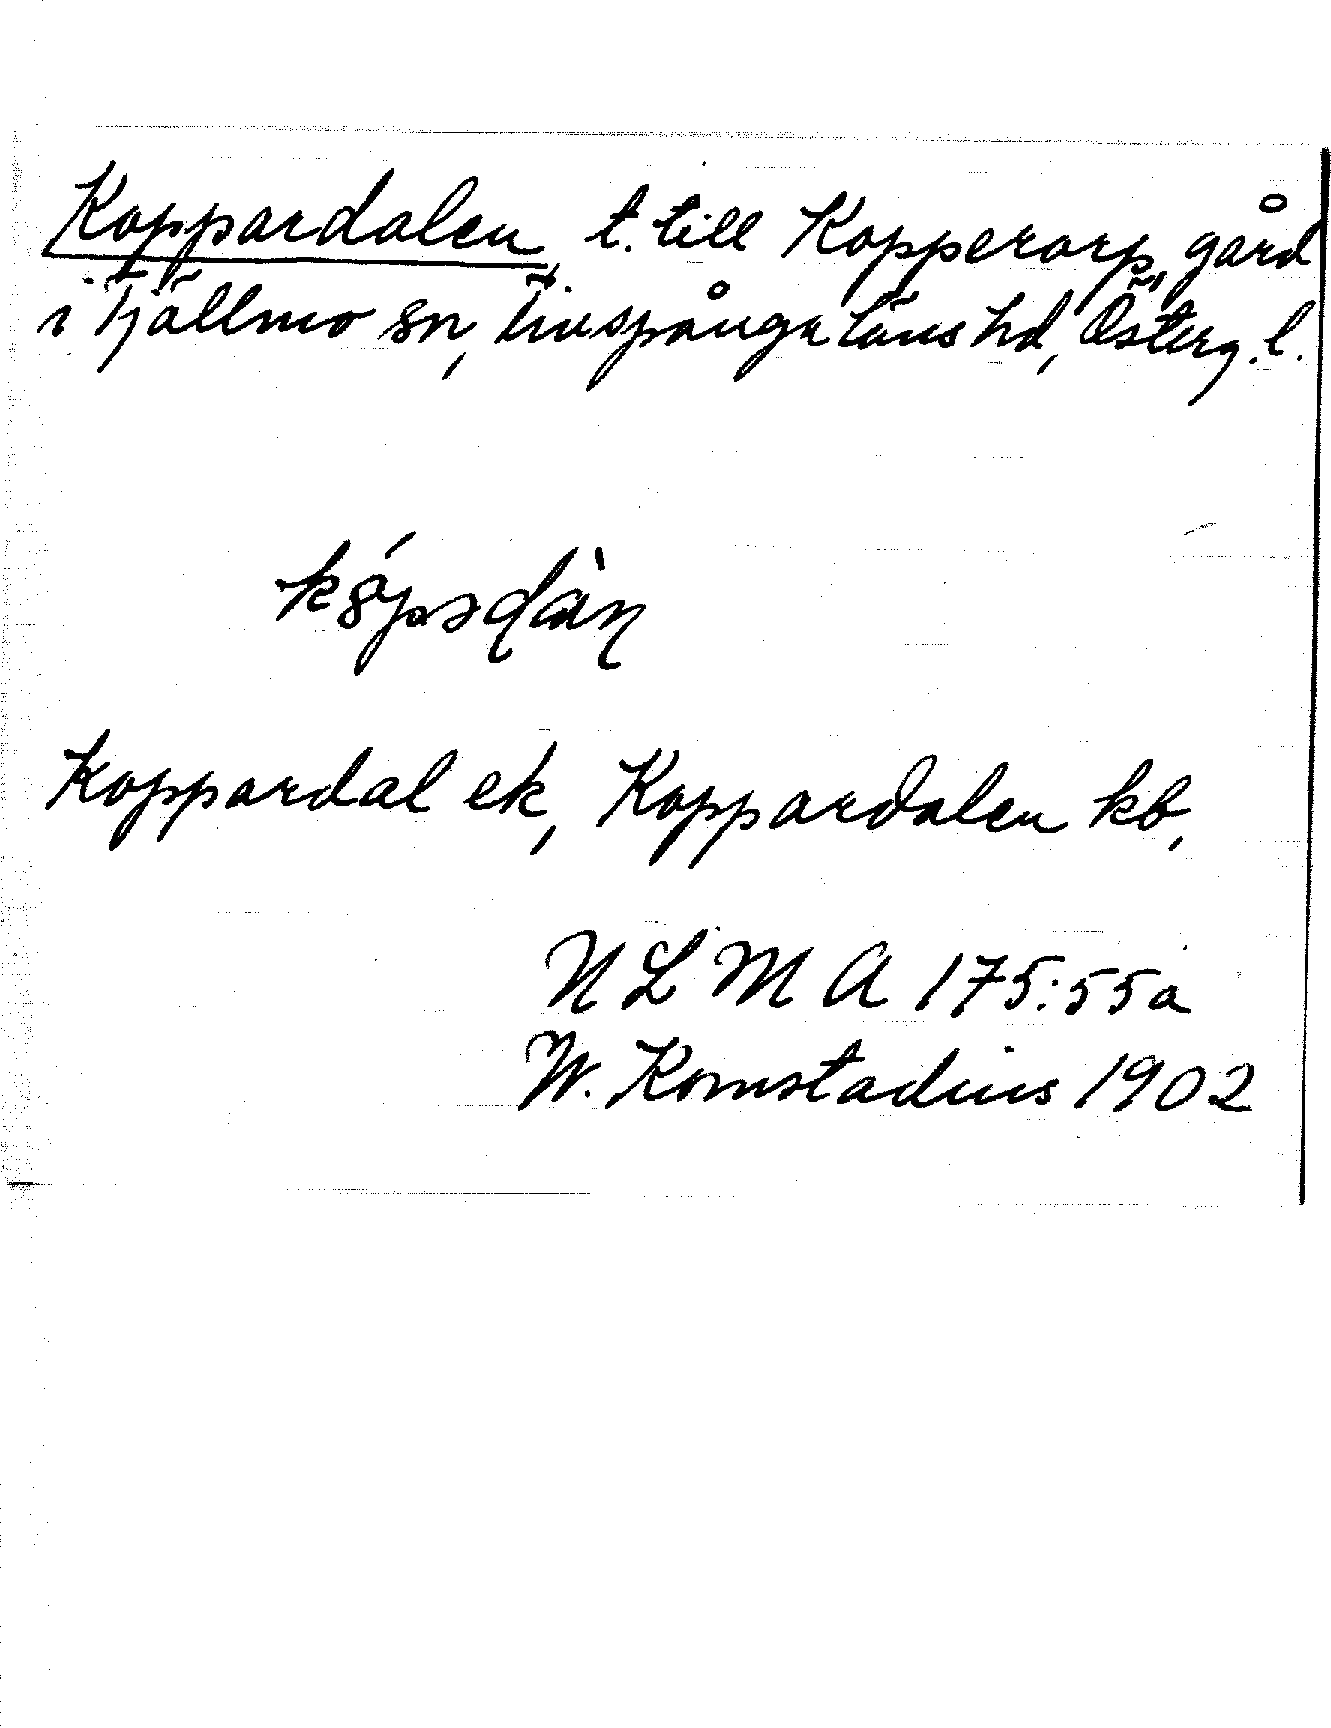 Koppardalen, t. till Kopperorp, gård
i Tjällmo sn, Finspånga läns hd, Österg. l.
Koppardal ek, Koppardalen kb,
N L M A 175:55a
W. Kornstadius 1902